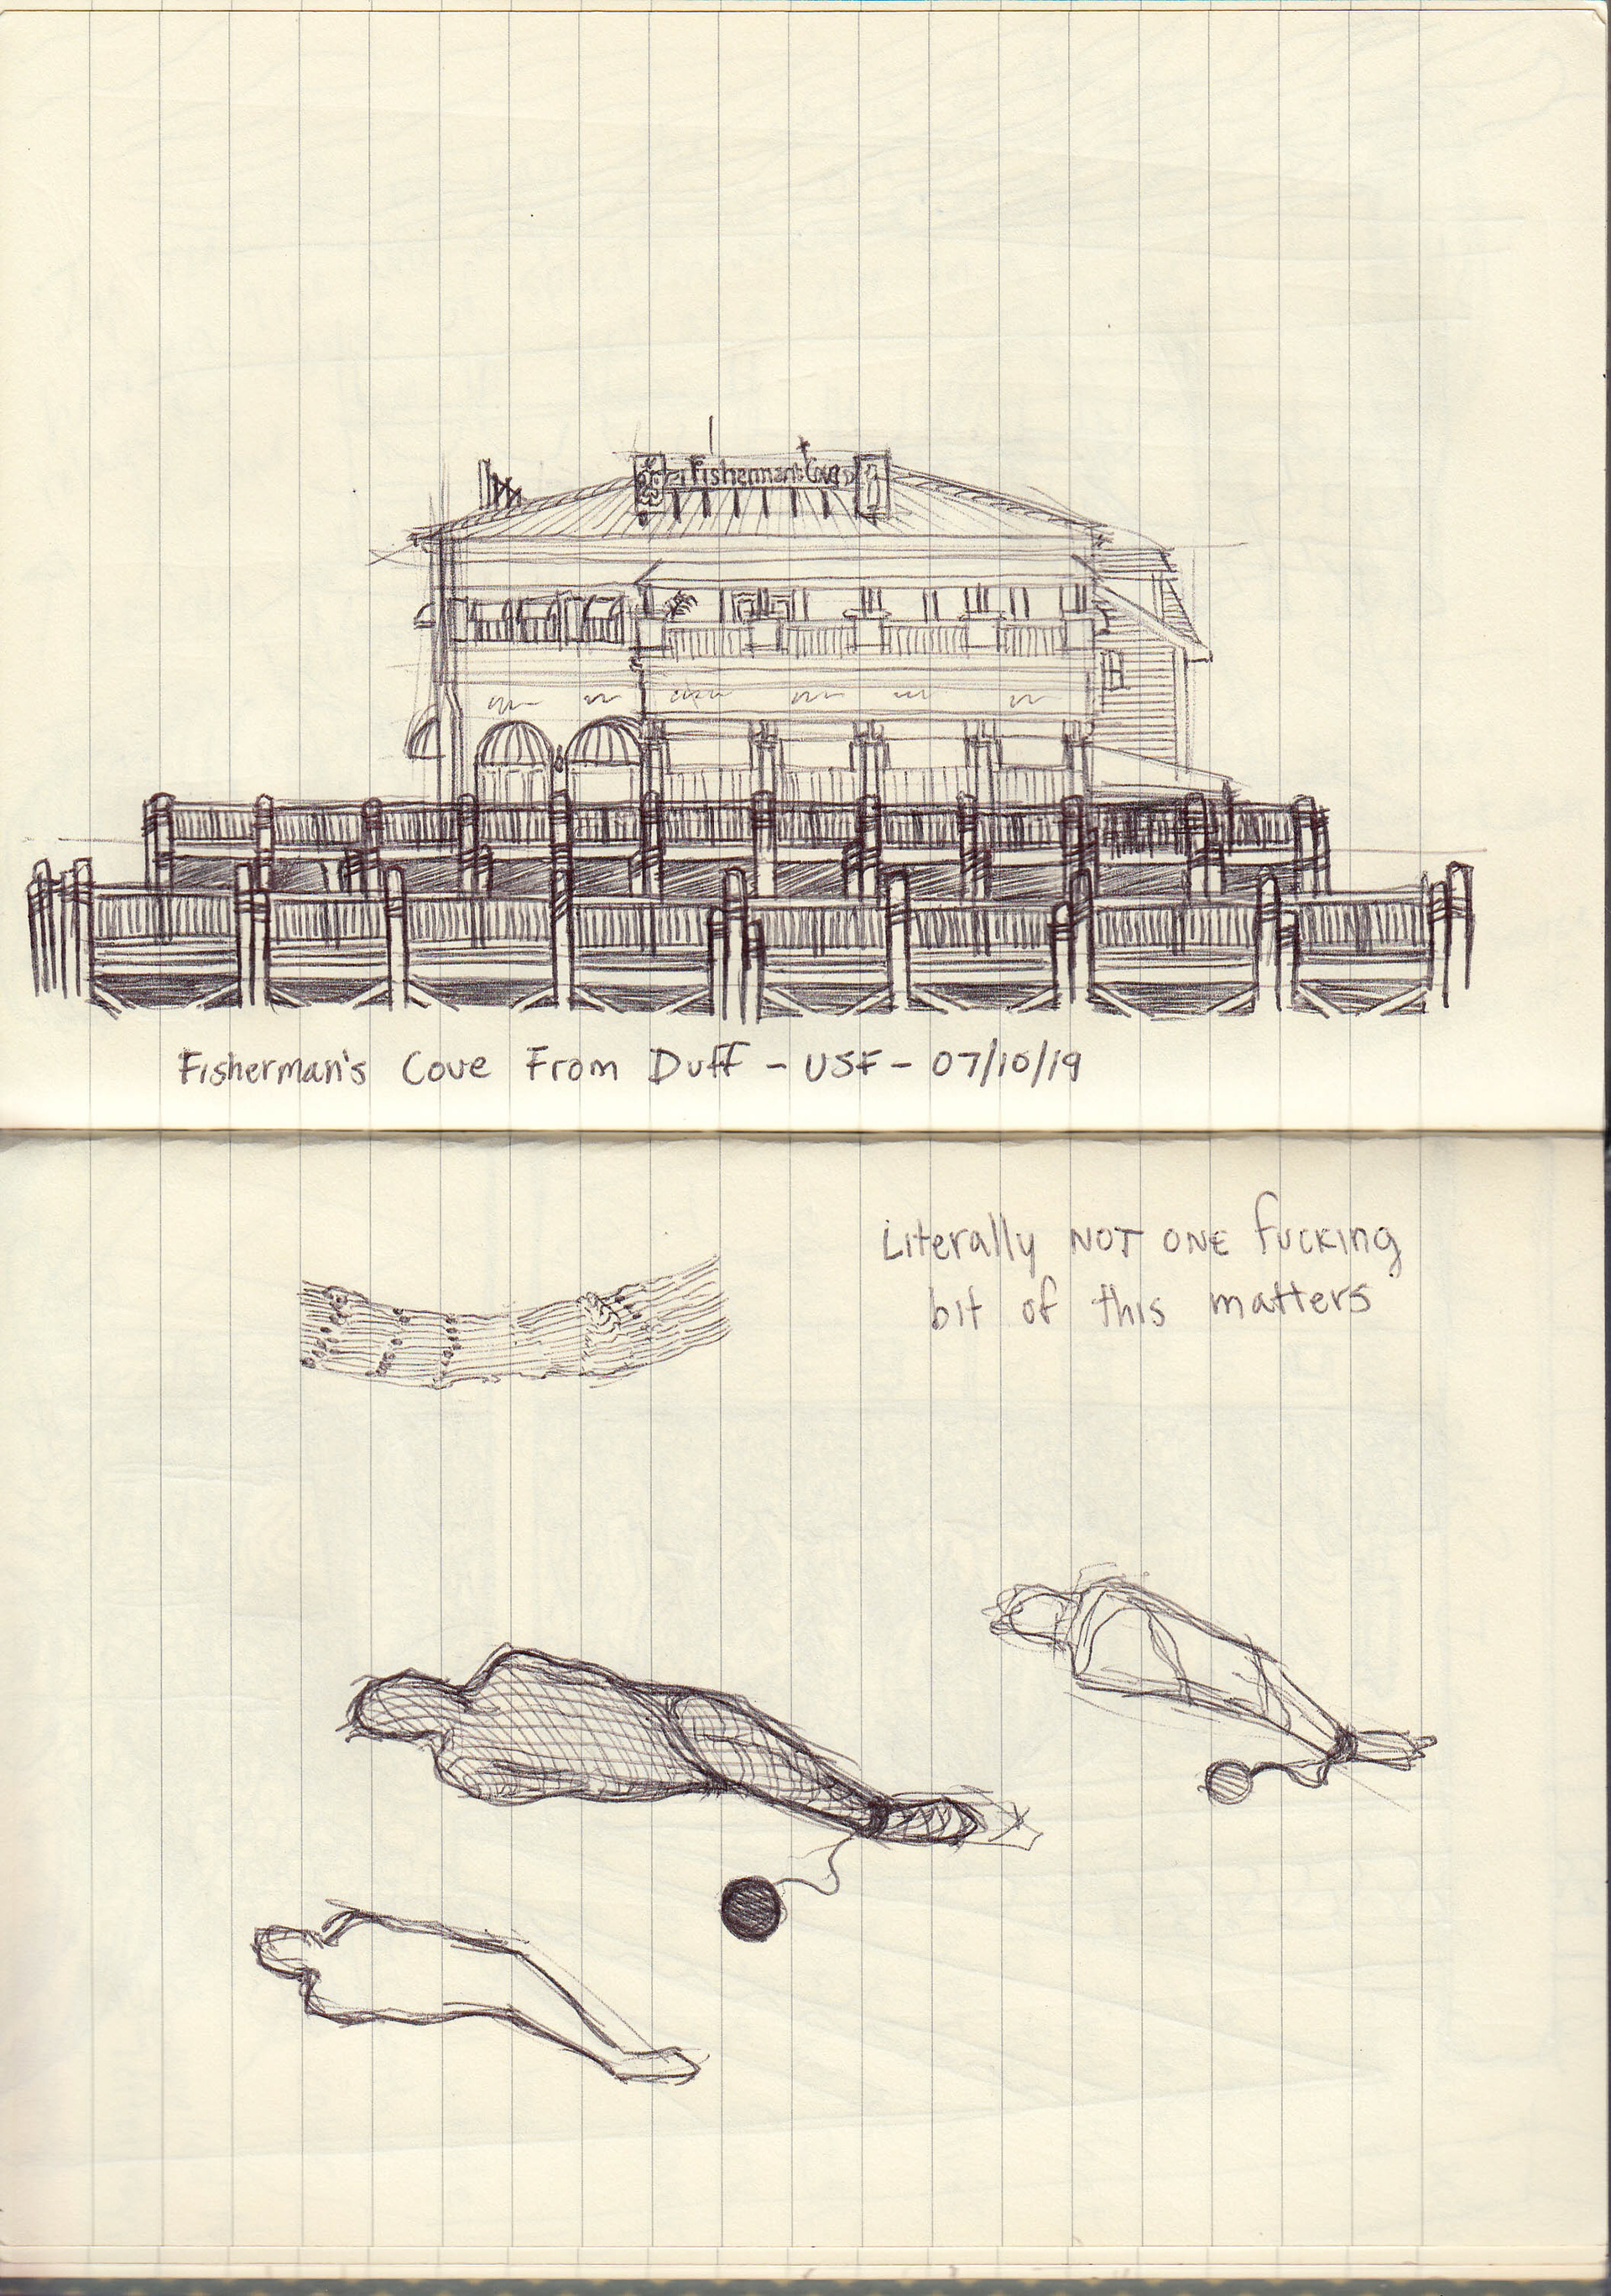 Fisherman's Cove
Fisherman's Cove From Duff - USF - 07/10/19
Literally NOT ONE fucking
bit of this matters